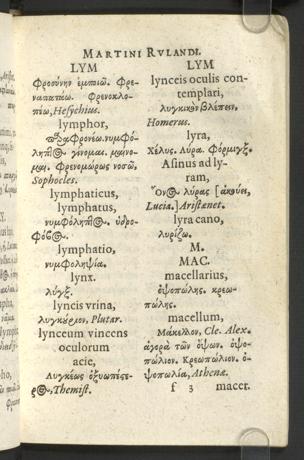 MARTINI RVLANDI.
LYM
Φροσύνην ἐμποιῶ. Φρε-
ναπατάω. Φρενοκλο-
πέω, Hesychius.
lymphor,
παραφρονέω. νυμφό-
ληπτος γίνομαι. μαίνο-
μαι. Φρενομώρως νοσῶ,
Sophocles.
lymphaticus,
lymphatus,
νυμφόληπτος. ὑδρο-
φόβος.
lymphatio,
νυμφοληψία.
lynx.
λύγξ.
lyncis vrina,
λυγκύριον, Plutar.
lynceum vincens
oculorum
acie,
Λυγκέως ὀξυωπέςε-
ρος, Themist.
LYM
lynceis oculis con-
templari,
λυγκικὸν βλέπειν,
Homerus.
lyra,
Χέλυς. Λύρα. Φόρμιγξ.
Asinus ad ly-
ram,
Ὄνος λύρας [ἀκούει,
Lucia.] Aristænet.
lyra cano,
λυρίζω.
M.
MAC.
macellarius,
ὀψοπώλης. κρεω-
πώλης.
macellum,
Μάκελλον, Cle. Alex.
ἀγορὰ τῶν ὄψων. ὀψο-
πώλιον. Κρεωπώλιον. ὀ-
ψοπωλία, Athenæ.
f 3 macer.